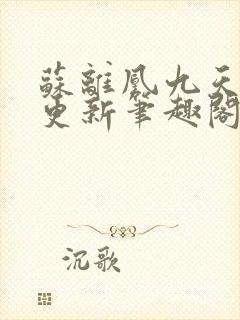 蘇離鳳九天
更新筆趣閣
沉歌